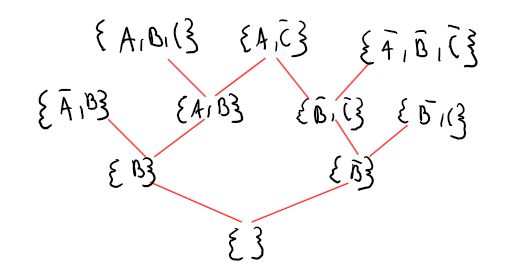 {A,B,C} {A,C̄} {Ā,B̄,C̄}
{Ā,B} {A,B} {B̄,C̄} {B̄,C}
{B} {B̄}
{ }